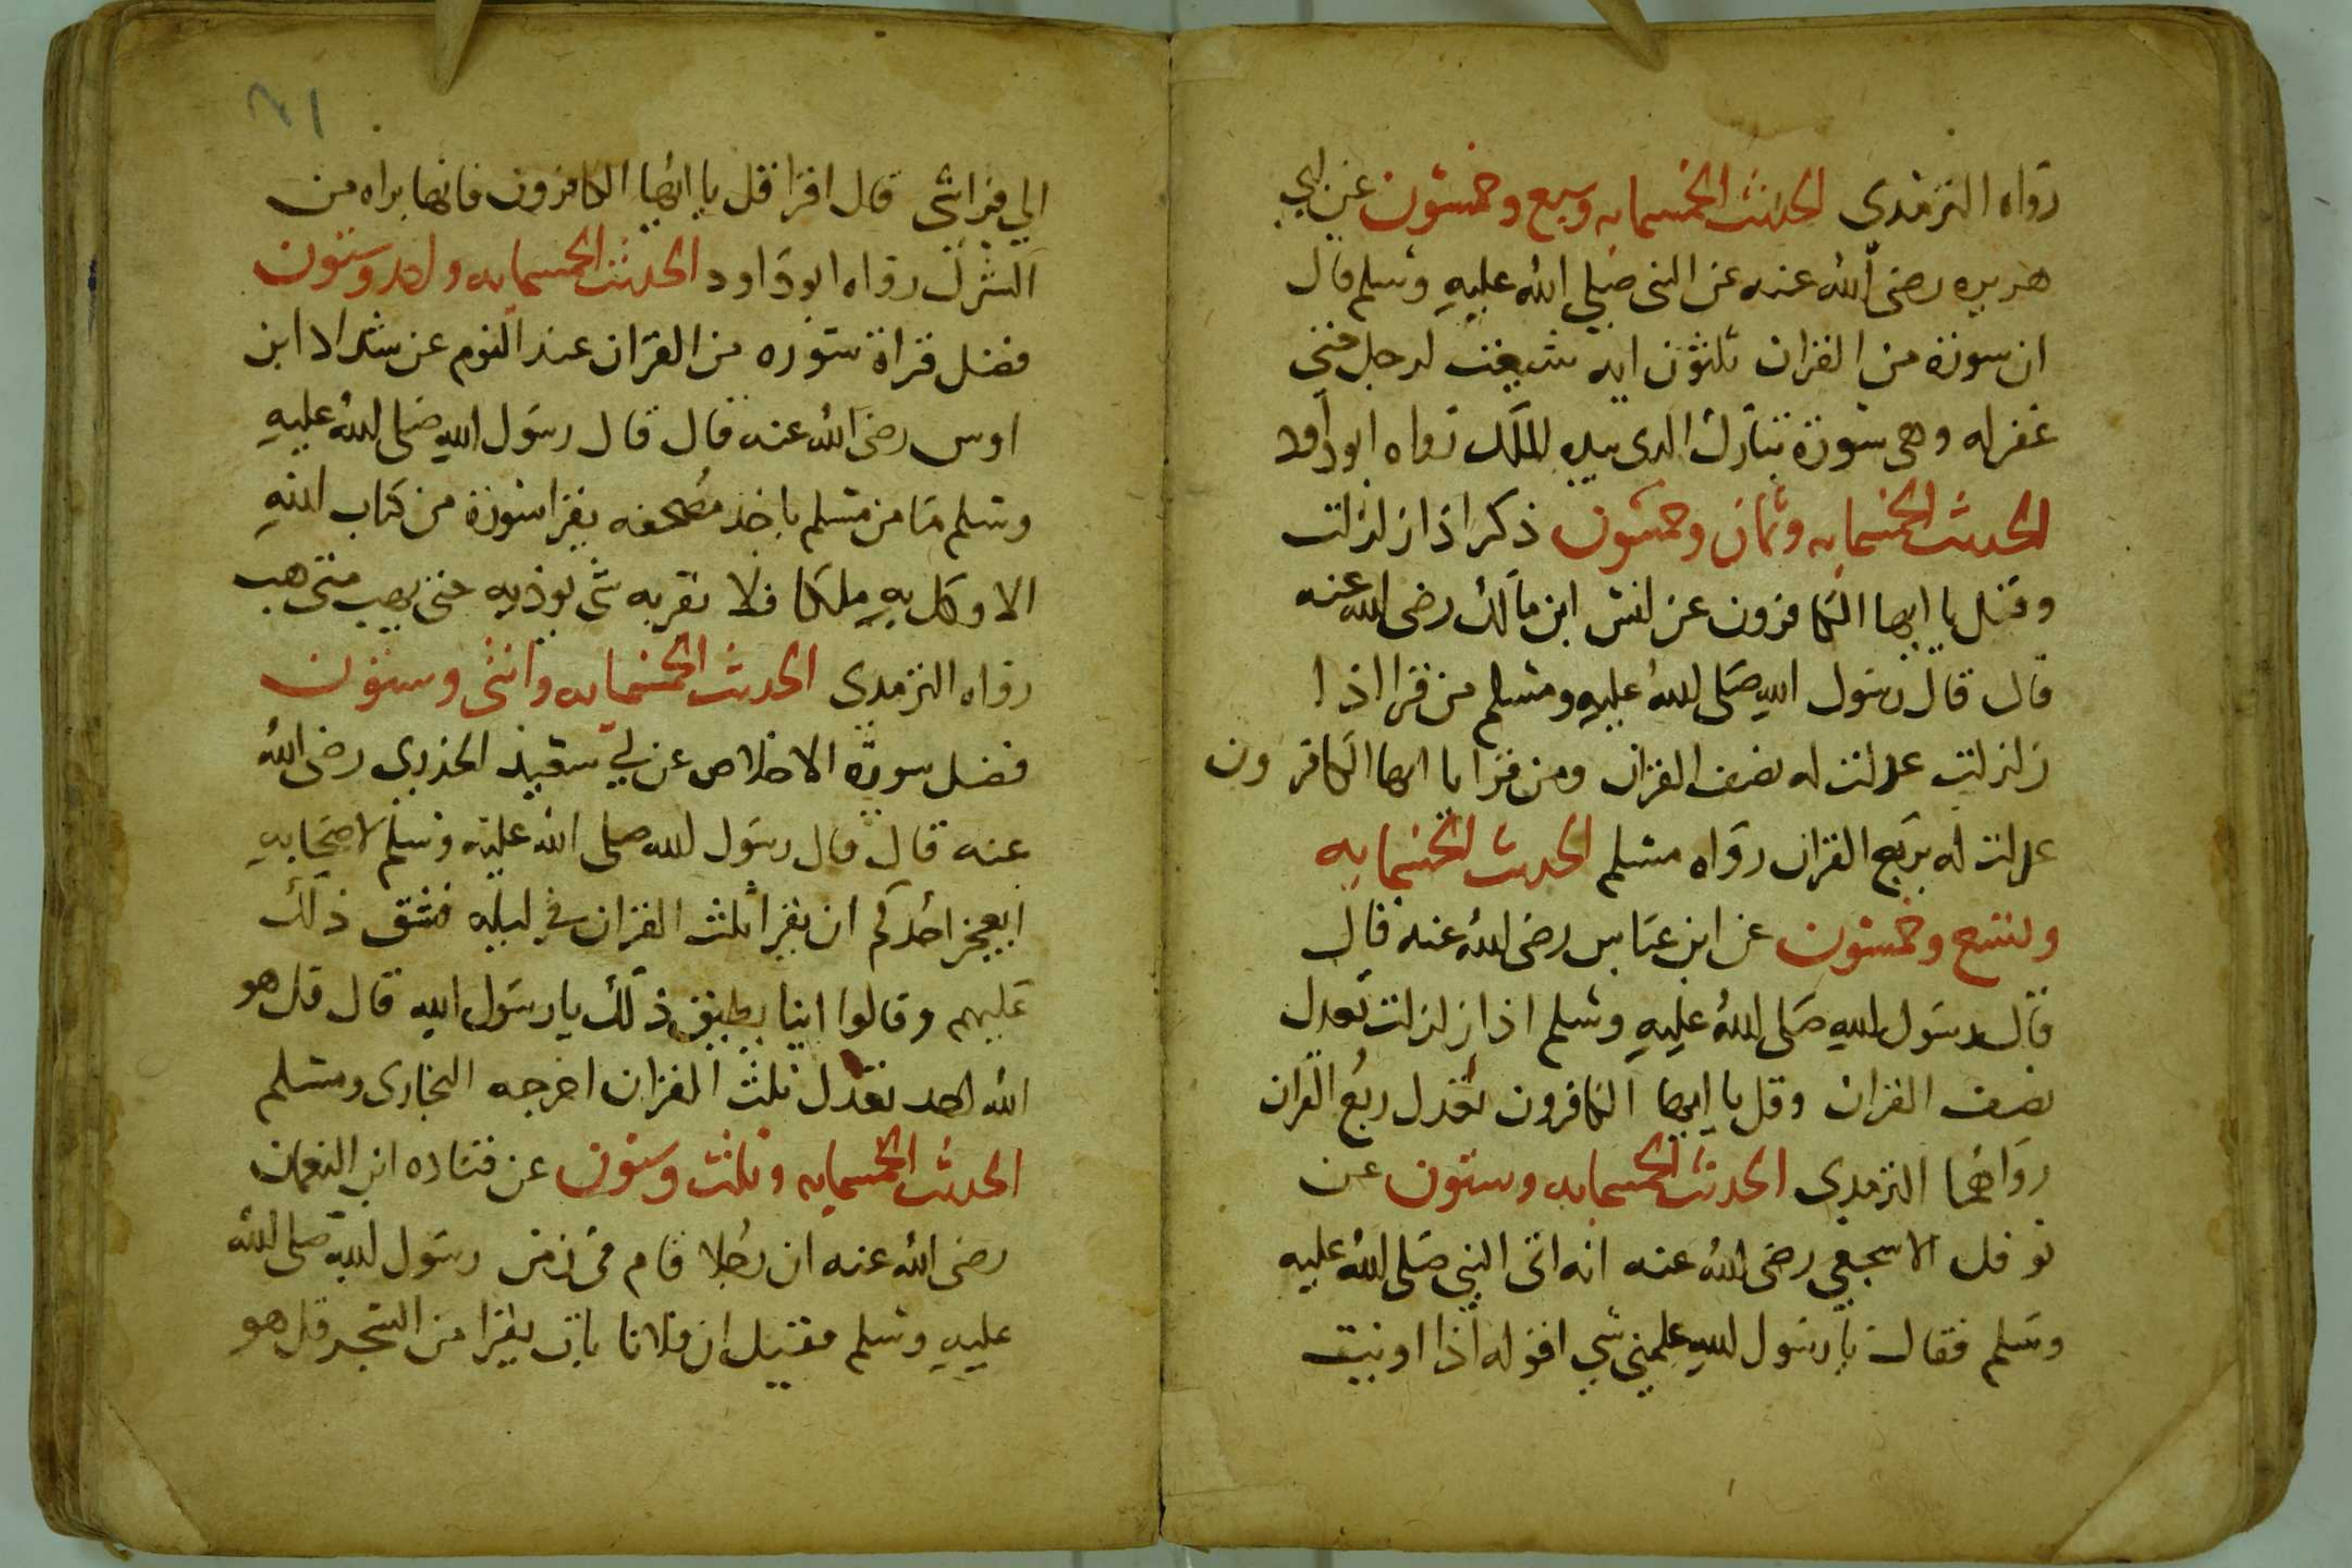 رواه الترمذي الحديث الخمسمايه وسبع وخمسون عن ابي
هريره رضي الله عنه عن النبي صلي الله عليه وسلم قال
ان سورة من القران ثلثون ايه شفعت لرجل حتي
غفر له وهي سورة تبارك الدي بيده الملك رواه ابو داود
الحديث الخمسمايه وثمان وخمسون ذكر اذا زلزلت
وقل يا ايها الكافرون عن انس ابن مالك رضي الله عنه
قال قال رسول الله صلى الله عليه وسلم من قرا اذا
زلزلت عدلت له نصف القران ومن قرا يا ايها الكافرون
عدلت له بربع القران رواه مسلم الحديث الخمسمايه
وتسع وخمسون عن ابن عباس رضي الله عنه قال
قال رسول الله صلى الله عليه وسلم اذا زلزلت تعدل
نصف القران وقل يا ايها الكافرون تعدل ربع القران
رواهما الترمدي الحديث الخمسمايه وستون عن
نوفل الاسجعي رضي الله عنه انه اتى النبي صلى الله عليه
وسلم فقال يا رسول الله علمني شي اقوله اذا اويت
الي فراشي قال اقرا قل يا ايها الكافرون فانها براه من
الشرك رواه ابو داود الحديث الخمسمايه واحد وستون
فضل قراة سوره من القران عند النوم عن شداد ابن
اوس رضي الله عنه قال قال رسول الله صلى الله عليه
وسلم ما من مسلم ياخذ مضجعه يقرا سورة من كتاب الله
الا وكل به ملكا فلا تقربه شي يوذيه حتي يهب متي هب
رواه الترمدي الحديث الخمسمايه واثني وستون
فضل سورة الاخلاص عن ابي سعيد الخدري رضي الله
عنه قال قال رسول الله صلى الله عليه وسلم لاصحابه
ايعجز احدكم ان يقرا ثلث القران في ليله فشق ذلك
عليهم وقالوا اينا يطيق ذلك يا رسول الله قال قل هو
الله احد تعدل ثلث القران اخرجه البخاري ومسلم
الحديث الخمسمايه وثلث وستون عن قتاده ابن النعمان
رضي الله عنه ان رجلا قام في زمن رسول الله صلى الله
عليه وسلم فقيل ان فلانا بات يقرا من السحر قل هو